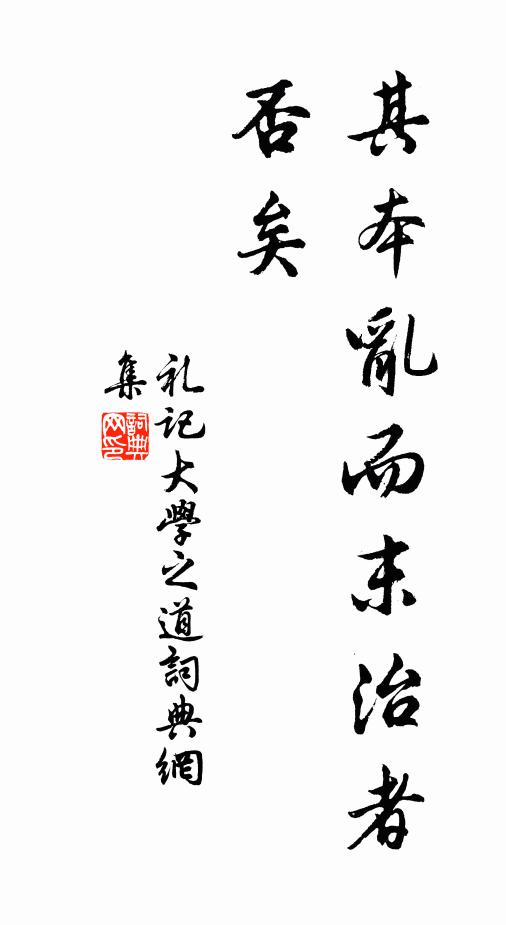 其本亂而末治者
否矣
礼记大學之道詞典網
集
詞典
网印